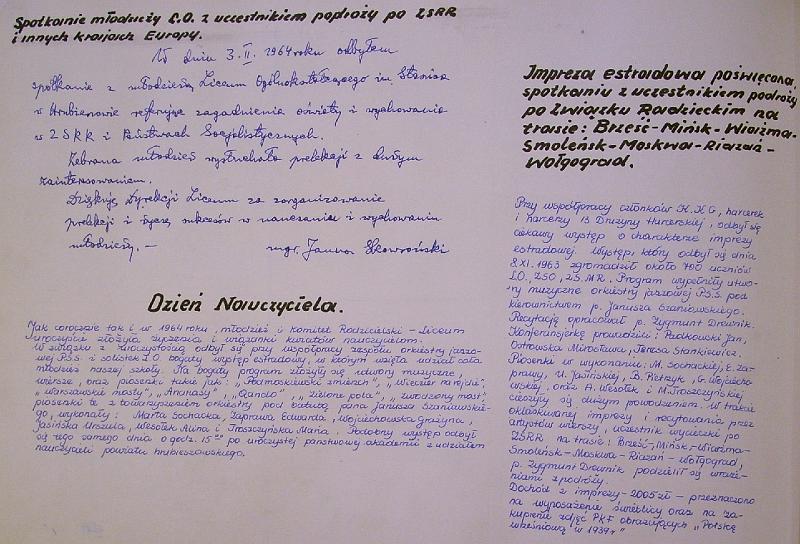 Spotkanie młodzieży L.O. z uczestnikiem podróży po ZSRR
i innych krajach Europy.
W dniu 3.II.1964 roku odbyłem
spotkanie z młodzieżą Liceum Ogólnokształcącego im. Staszica
w Hrubieszowie referując zagadnienia oświaty i wychowania
w ZSRR i Państwach Socjalistycznych.
Zebrana młodzież wysłuchała prelekcji z dużym
zainteresowaniem.
Dziękuję Dyrekcji Liceum za zorganizowanie
prelekcji i życzę sukcesów w nauczaniu i wychowaniu
młodzieży. —
mgr. Janusz Skowroński
Dzień Nauczyciela.
Jak corocznie tak i w 1964 roku, młodzież i Komitet Rodzicielski – Liceum
uroczyście złożyła życzenia i wiązanki kwiatów nauczycielom.
W związku z uroczystością odbył się przy współpracy zespołu orkiestry jazzo-
wej P.S.S. i solistek L.O. bogaty występ estradowy, w którym wzięła udział cała
młodzież naszej szkoły. Na bogaty program złożyły się utwory muzyczne,
wiersze, oraz piosenki takie jak: „Podmoskiewski zmierzch", „Wieczór na rejdzie",
„Warszawskie mosty", „Ananasy", „Zielone pola", „Zwodzony most"
piosenki te z towarzyszeniem orkiestry pod batutą pana Janusza Szaniawskie-
go, wykonały: Marta Sochacka, Zaprawa Edwarda, Wojciechowska Grażyna,
Jasińska Urszula, Wesołek Mira i Troszczyńska Maria. Podobny występ odbył
się tego samego dnia o godz. 15⁰⁰ po uroczystej państwowej akademii z udziałem
nauczycieli powiatu hrubieszowskiego.
Impreza estradowa poświęcona
spotkaniu z uczestnikiem podróży
po Związku Radzieckim na
trasie: Brześć-Mińsk-Wiaźma-
Smoleńsk-Moskwa-Riazań-
Wołgograd.
Przy współpracy członków K.K.O., harcerek
i harcerzy 13 Drużyny Harcerskiej, odbył się
ciekawy występ o charakterze imprezy
estradowej. Występ, który odbył się dnia
8.XI.1963 zgromadził około 700 uczniów
L.O., ZSO, ZS.MR. Program wypełniły utwo-
ry muzyczne orkiestry jazzowej P.S.S. pod
kierownictwem p. Janusza Szaniawskiego.
Recytację opracował p. Zygmunt Drewnik.
Konferansjerkę prowadzili: Padkowski Jan,
Ostrowska Mirosława, Teresa Stankiewicz.
Piosenki w wykonaniu: M. Sochackiej, E. Za-
prawy, U. Jasińskiej, B. Pietrzyk, G. Wojciecho-
wskiej, oraz A. Wesołek i M. Troszczyńskiej
cieszyły się dużym powodzeniem. W trakcie
oklaskiwanej imprezy i recytowania przez
artystów wierszy, uczestnik wycieczki po
ZSRR na trasie: Brześć-Mińsk-Wiaźma-
Smoleńsk-Moskwa-Riazań-Wołgograd,
p. Zygmunt Drewnik podzielił się wraże-
niami z podróży.
Dochód z imprezy - 2005 zł - przeznaczono
na wyposażenie świetlicy oraz na za-
kupienie zdjęć PKF obrazujących „Polskę
wrześniową w 1939 r"